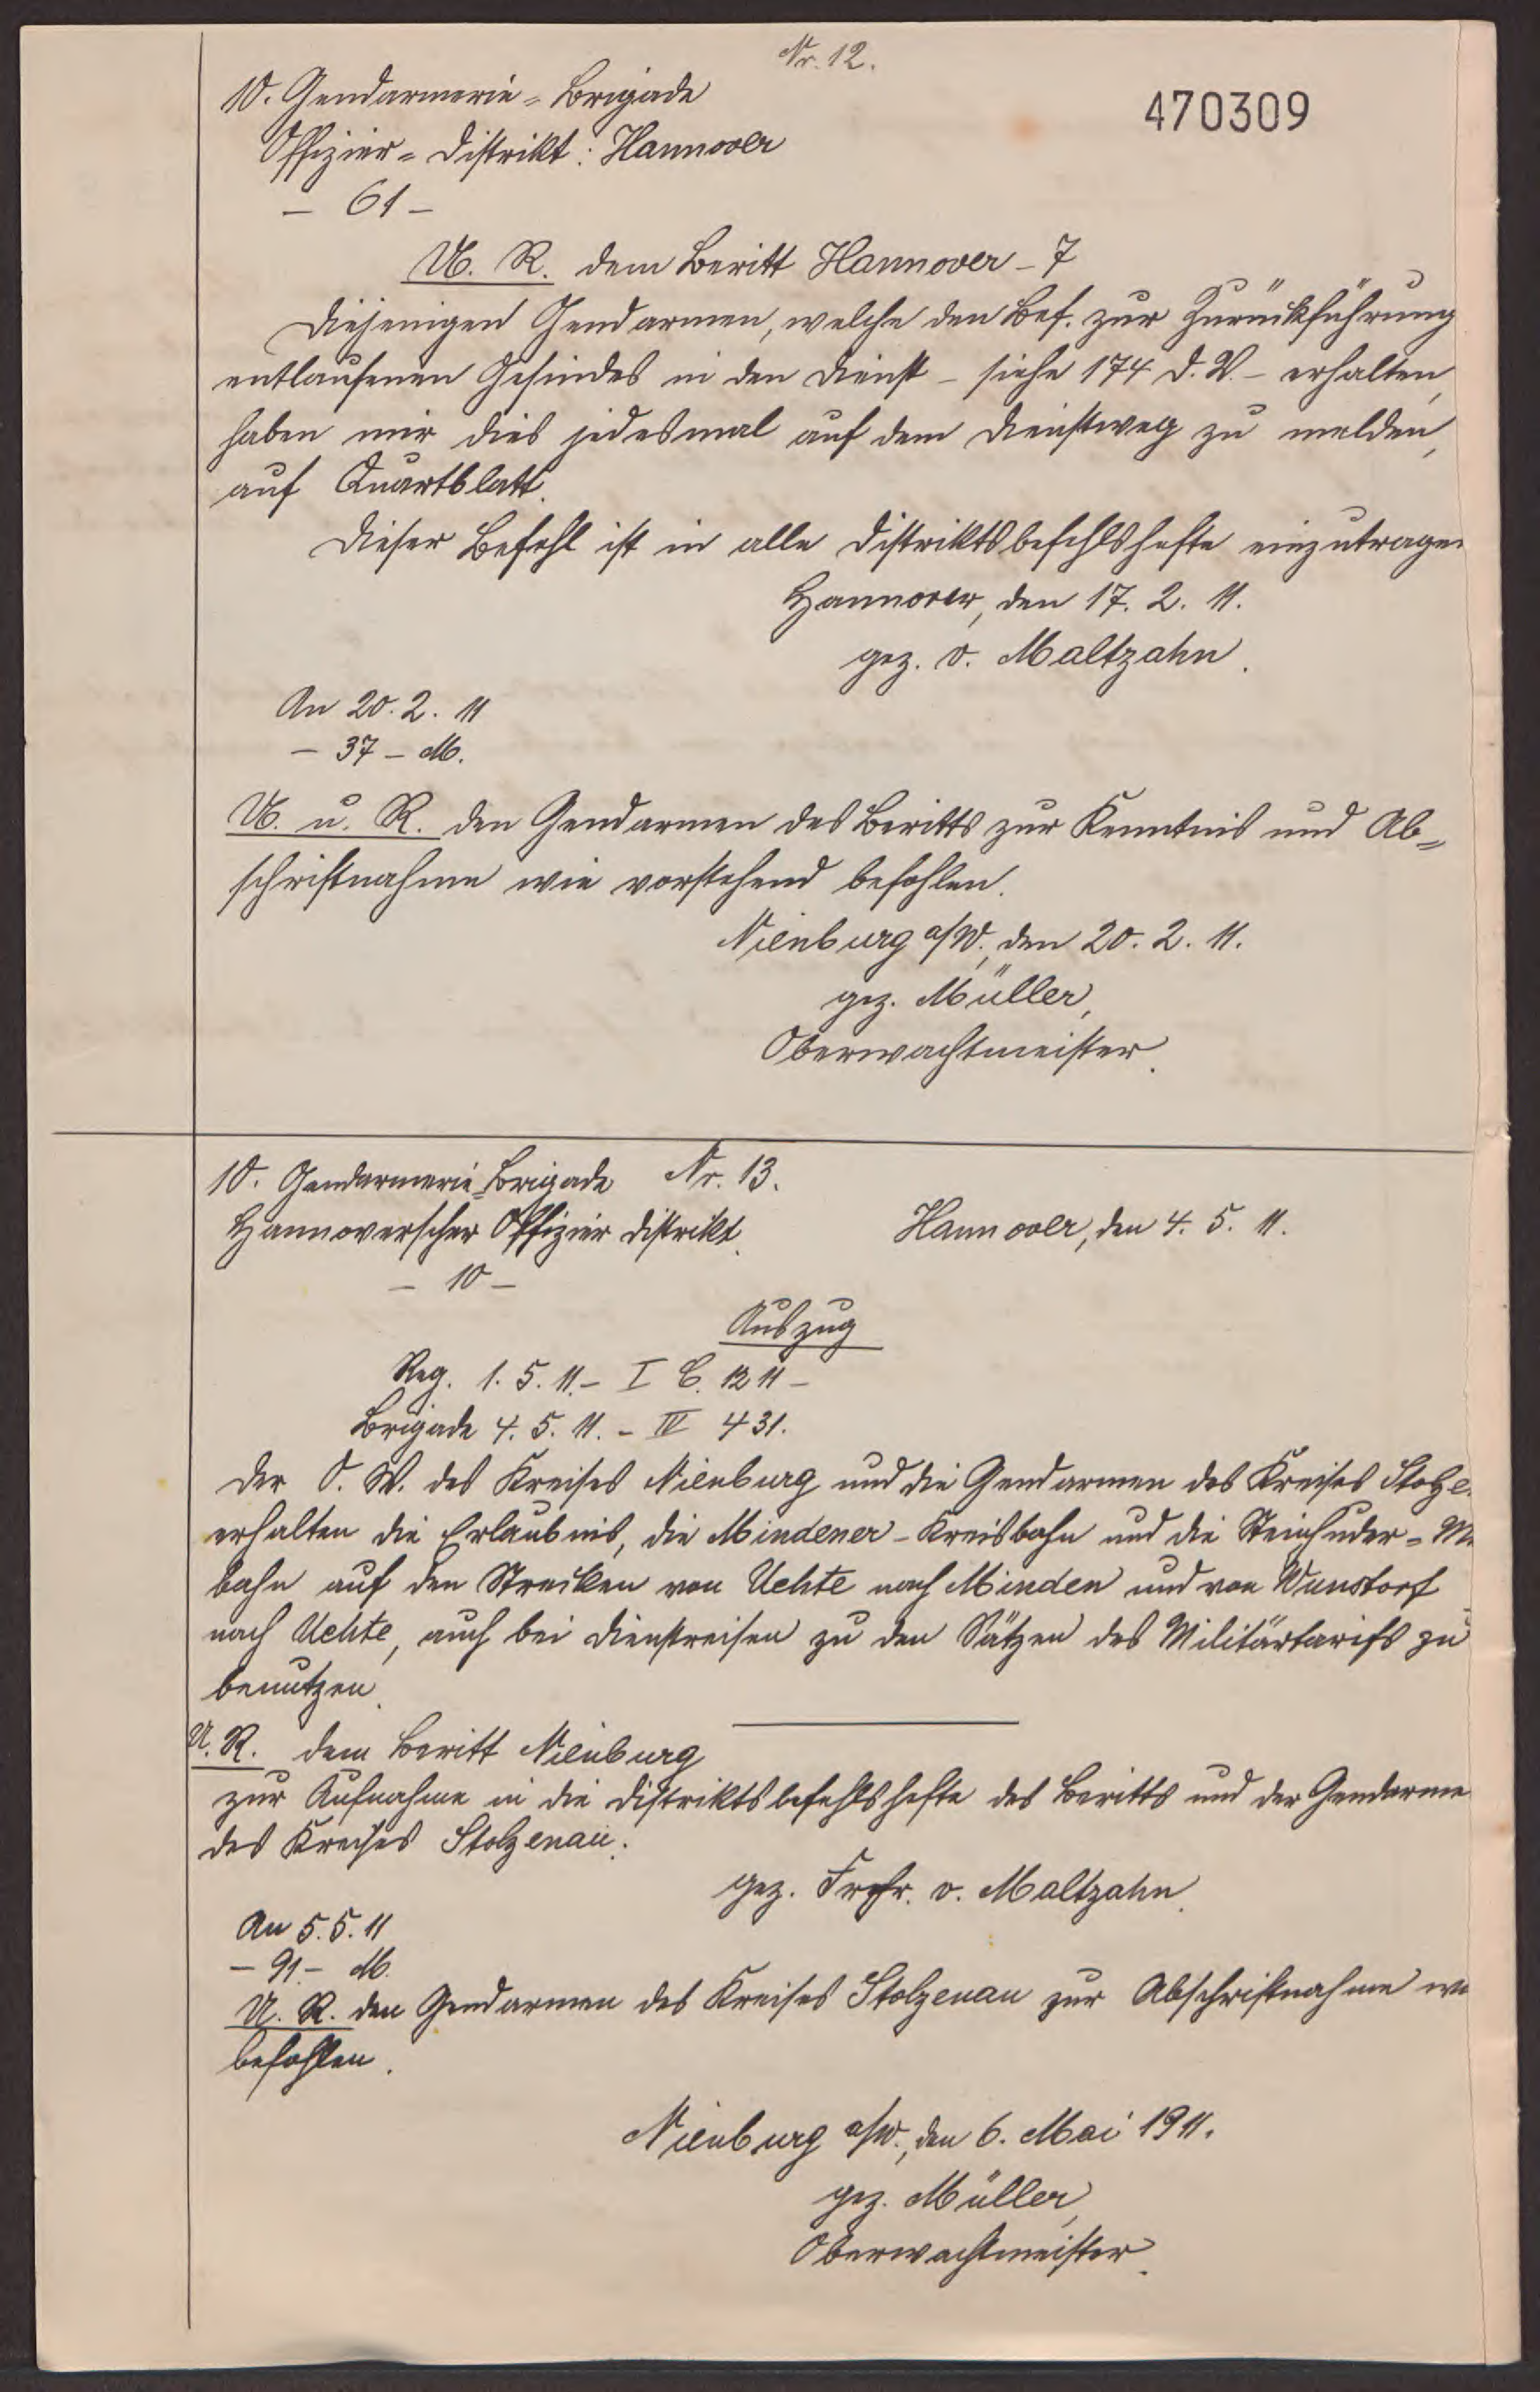 Nr. 12.
10. Gendarmerie-Brigade
470309
Offizier-Distrikt: Hannover
- 61 -
U. R. dem Beritt Hannover - 7
Diejenigen Gendarmen, welche den Bef. zur Zurückführung
entlaufenen Gesindes in den Dienst - siehe 174 D. V. - erhalten,
haben mir dies jedesmal auf dem Dienstweg zu melden,
auf Quartblatt.
Dieser Befehl ist in alle Distriktsbefehlshefte einzutragen
Hannover, den 17. 2. 11.
gez. v. Maltzahn.
An 20. 2. 11
- 37 - M.
U. u. R. den Gendarmen des Beritts zur Kenntnis und Ab=
schriftnahme wie vorstehend befohlen.
Nienburg a/W., den 20. 2. 11.
gez. Müller,
Oberwachtmeister.
10. Gendarmerie-Brigade Nr. 13.
Hannoverscher Offizier Distrikt. Hannover, den 4. 5. 11.
- 10 -
Auszug
Reg. 1. 5. 11. - I C. 1211 -
Brigade 4. 5. 11. - IV 431.
Der O. W. des Kreises Nienburg und die Gendarmen des Kreises Stolze
erhalten die Erlaubnis, die Mindener-Kreisbahn und die Steinhuder-M
bahn auf den Strecken von Uchte nach Minden und von Wunstorf
nach Uchte, auch bei Dienstreisen zu den Sätzen des Militärtarifs zu
benutzen.
U. R. dem Beritt Nienburg
zur Aufnahme in die Distriktsbefehlshefte des Beritts und der Gendarme
des Kreises Stolzenau.
gez. Frhr. v. Maltzahn.
An 5. 5. 11
- 91. - M.
U. R. den Gendarmen des Kreises Stolzenau zur Abschriftnahme w
befohlen.
Nienburg a/W., den 6. Mai 1911.
gez. Müller,
Oberwachtmeister.